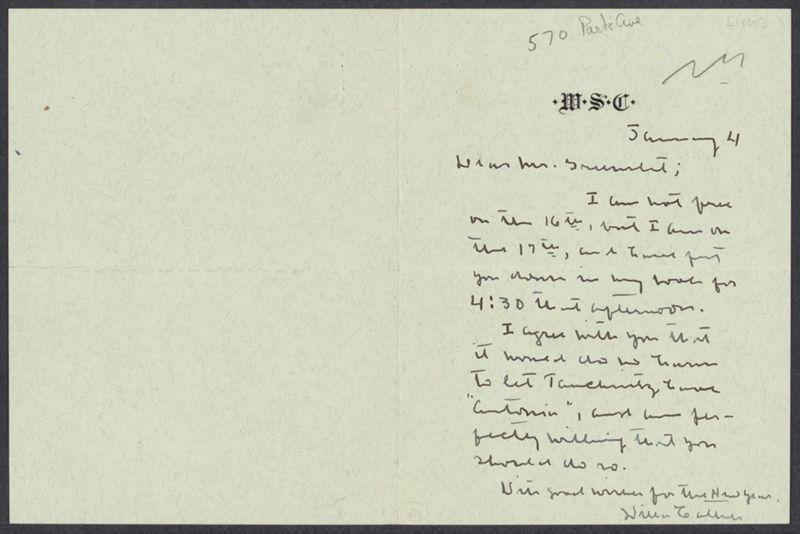 570 Park Ave
[1935]
·W·S·C·
January 4
Dear Mr. Greenslet;
I am not free
on the 16th, but I am on
the 17th, and have put
you down in my book for
4:30 that afternoon.
I agree with you that
it would do no harm
to let Tauchnitz have
"Antonia", and am per-
fectly willing that you
should do so.
With good wishes for the New Year.
Willa Cather